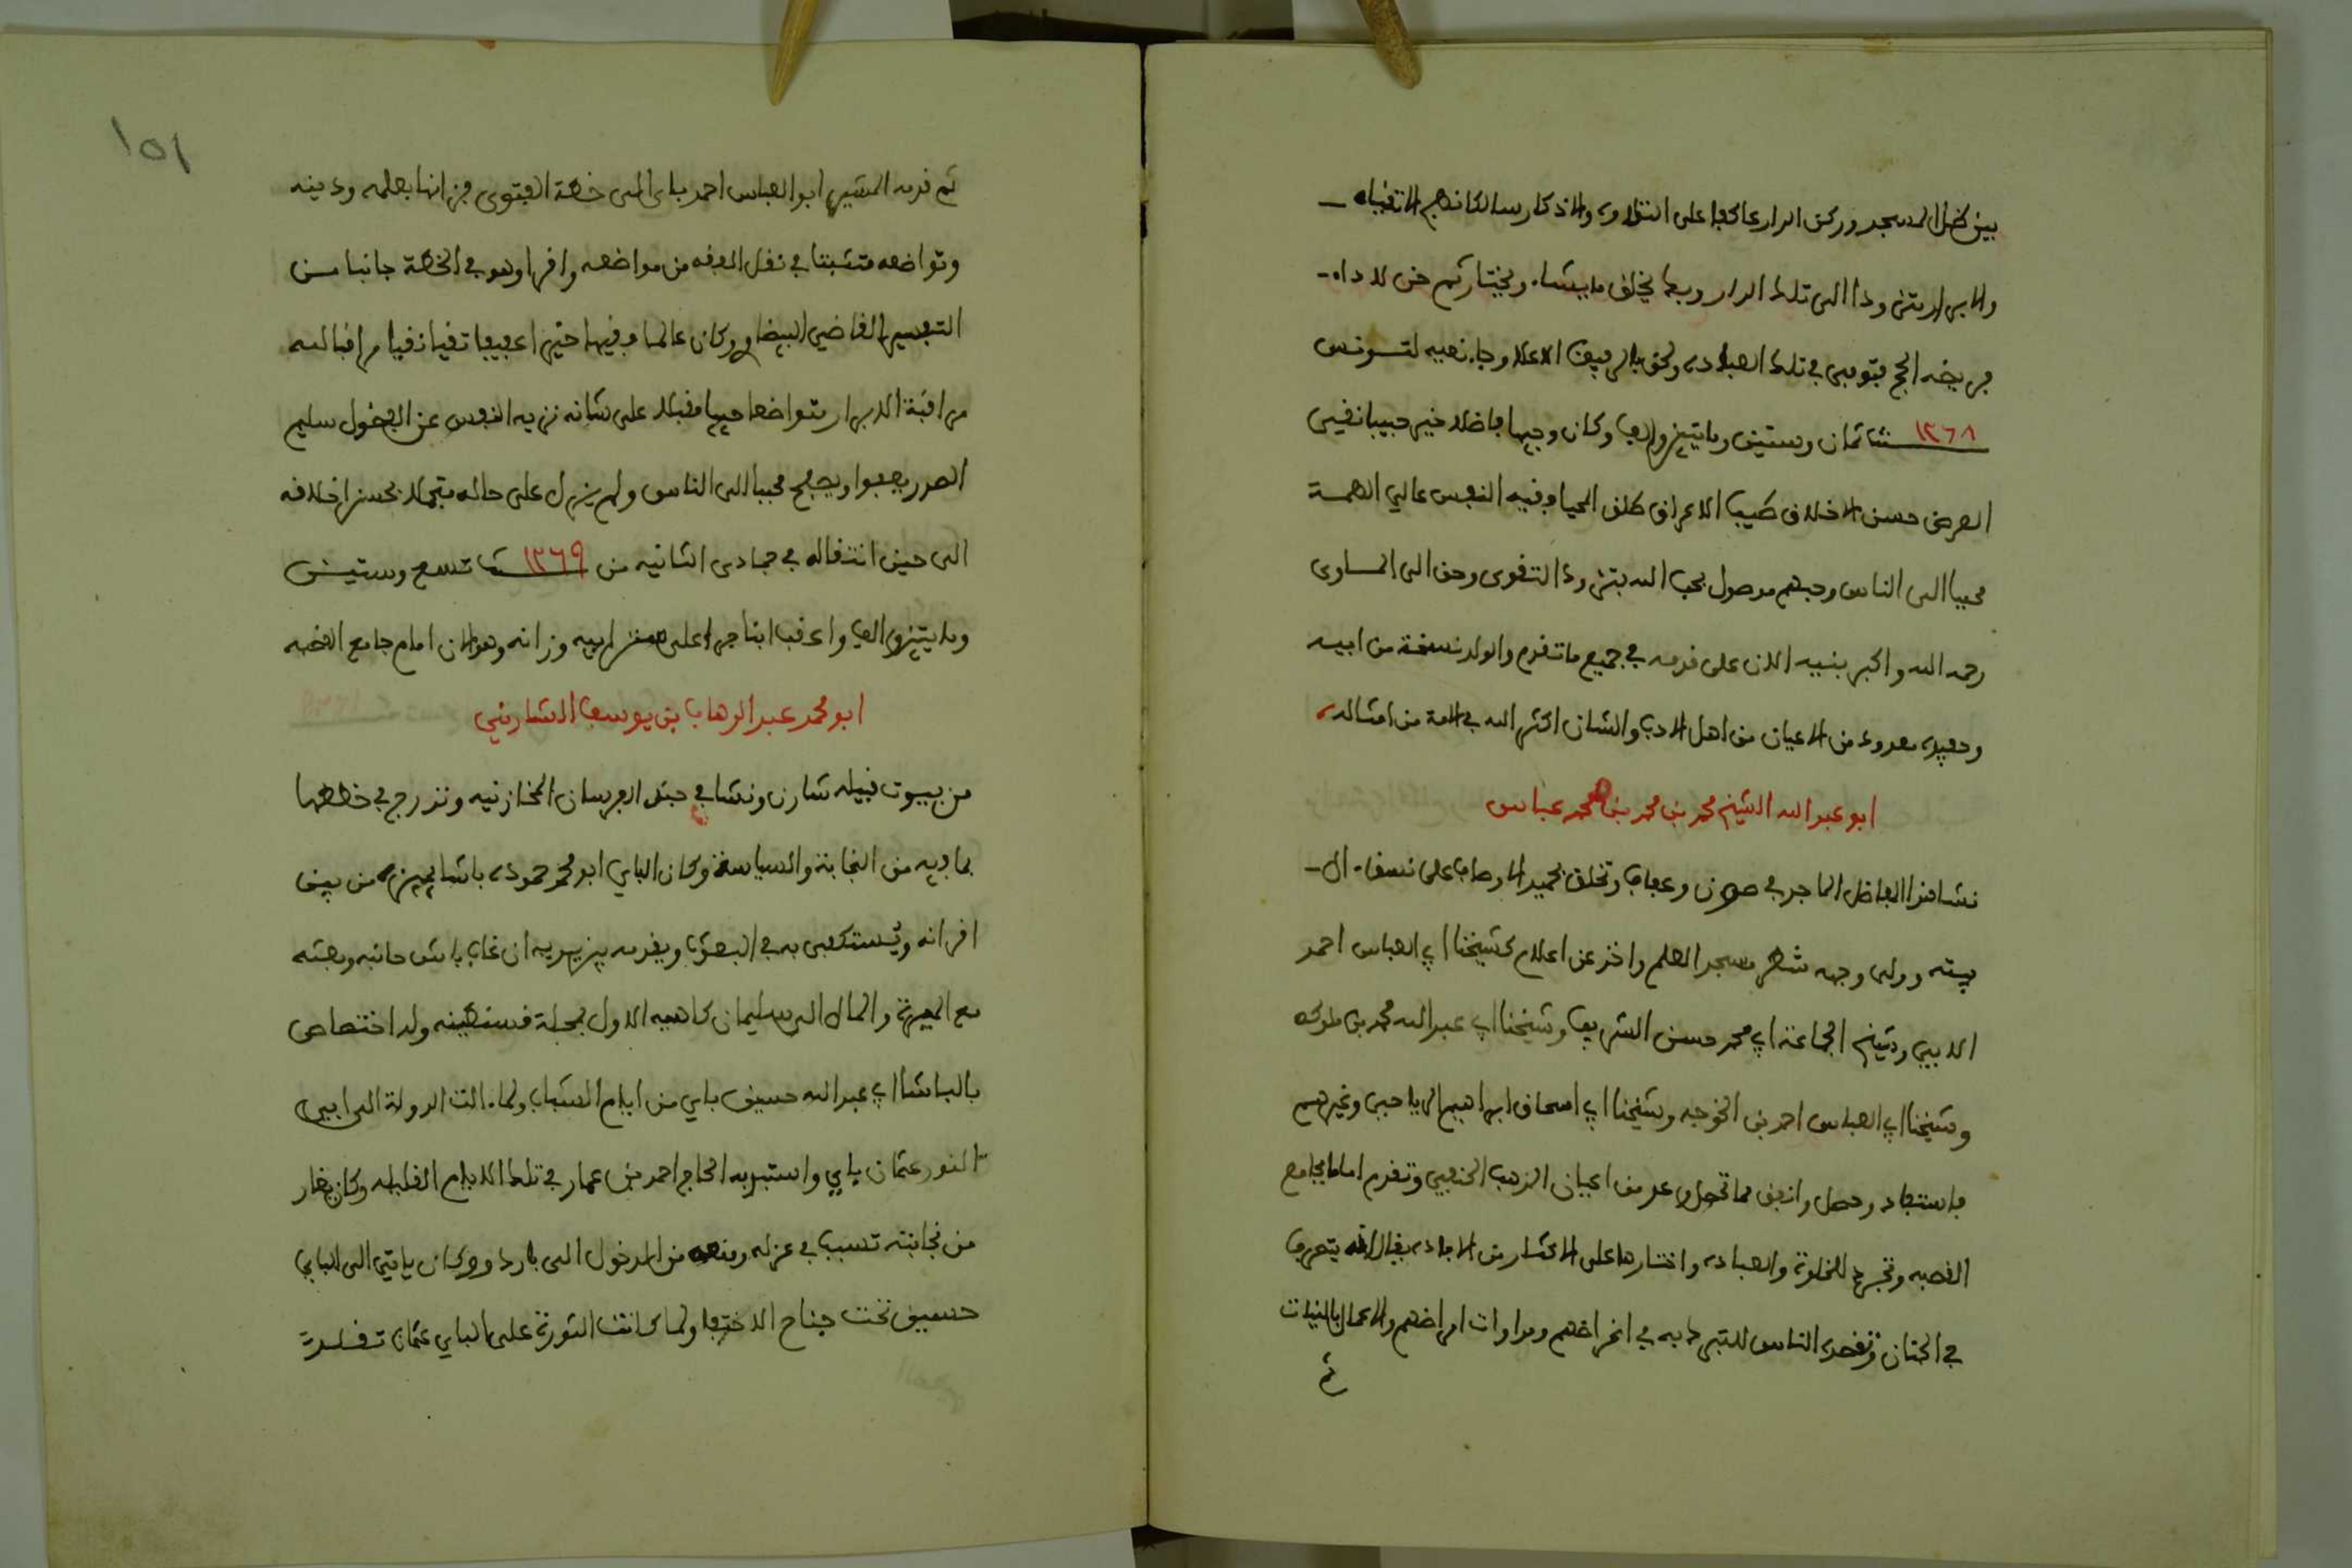 بين ظل المسجد وركن الدار عاكفا على التلاوة والاذكار سالكا نهج الاتقياء
والابرار يتزود الى تلك الدار وربما يخلق ما يشاء ويختار ثم خرج لاداء
فريضة الحج فتوفي في تلك العبادة ولحق بالرفيق الاعلا وجاء نعيه لتونس
سنة ١٢٦٨ ثمان وستين ومايتين والف وكان وجيها فاضلا خيرا حبيبا نقي
العرض حسن الاخلاق طيب الاعراق طلق المحيا وفيه النفس عالي الهمة
محببا الى الناس وحبهم موصول بحب الله يتزود التقوى وحن الى الماوى
رحمه الله واكبر بنيه الان على قدمه في جميع ما تقدم والولد نسخة من ابيه
وحفيده معدود من الاعيان من اهل الادب والشان اكثر الله في الامة من امثاله
ابو عبد الله الشيخ محمد بن محمد بن محمد عباس
نشا هذا الفاضل الماجد في صون وعفاف وتخلق بحميد الاوصاف على نسق ال
بيته وولى وجهه شطر مسجد العلم واخذ عن اعلام كشيخنا ابي العباس احمد
الابي وشيخ الجماعة ابي محمد حسن الشريف وشيخنا ابي عبد الله محمد بن ملوكه
وشيخنا ابي العباس احمد بن الخوجه وشيخنا ابي اسحاق ابراهيم الرياحي وغيرهم
فاستفاد وحصل وانفق مما تحصل وعد من اعيان المذهب الحنفي وتقدم اماما بجامع
القصبه وتجرد للخلوة والعبادة واختارها على الاكثار من الافادة يقال انه يتصرف
في الجان وتقصده الناس للتبرك به في اغراضهم ومداوات امراضهم والاعمال بالنيات
ثم
١٥١
ثم قدمه المشير ابو العباس احمد باى الى خطة الفتوى فزانها بعلمه ودينه
وتواضعه متثبتا في نقل الفقه من مواضعه واقرا وهو في الخطة جانبا من
التفسير للقاضي البيضاوي وكان عالما فقيها خيرا عفيفا تقيا نقيا مراقبا لله
مراقبة الابرار متواضعا حييا مقبلا على شانه نزيه النفس عن الفضول سليم
الصدر يعفوا ويصفح محببا الى الناس ولم يزل على حاله متجملا بحسن اخلاقه
الى حين انتقاله في جمادى الثانيه من سنة ١٢٦٩ تسع وستين
ومايتين والف واعقب ابنا جرا على سنن ابيه وزانه وهو الان امام جامع القصبه
ابو محمد عبد الوهاب بن يوسف الشارني
من بيوت قبيلة شارن ونشا في جند الفرسان المخازنيه وتدرج في خططها
بما فيه من النجابة والسياسة وكان الباي ابو محمد حموده باشا يميزه من بين
اقرانه ويستكفي به في البعوث ويقدمه بين يديه ان غاب باش حانبه وبعثه
مع الميرة والمال الى سليمان كاهيه الاول بمحلة قسنطينه وله اختصاص
بالباشا ابي عبد الله حسين باي من ايام الشباب ولما ءالت الدولة الى ابي
النور عثمان باي واستبد به الحاج احمد بن عمار في تلك الايام القليله وكان يغار
من نجابته تسبب في عزله ومنعه من الدخول الى باردو وكان ياتي الى الباي
حسين تحت جناح الاختفا ولما كانت الثورة على الباي عثمان تقلد